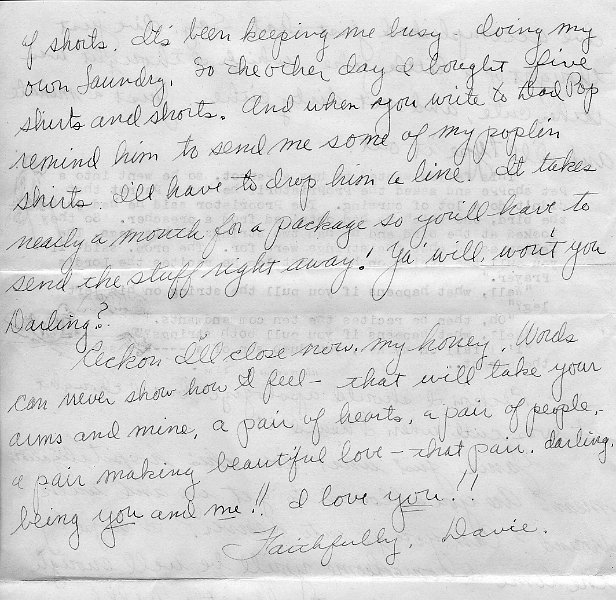 of shorts. It's been keeping me busy. doing my
own laundry. So the other day I bought five
shirts and shorts. And when you write to Dad Pop
remind him to send me some of my poplin
shirts. I'll have to drop him a line. It takes
nearly a month for a package so you'll have to
send the stuff right away! Ya' will, won't you
Darling?
Reckon I'll close now, my honey. Words
can never show how I feel - that will take your
arms and mine, a pair of hearts, a pair of people,
a pair making beautiful love - that pair, darling,
being you and me!! I love you!!
Faithfully, Davie.